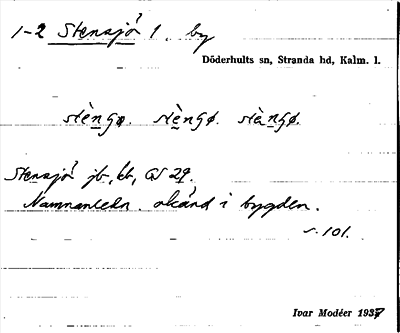 1-2 Stensjö 1. by
Döderhults sn, Stranda hd, Kalm. l.
stèngø. stèngø. stàngø.
Stensjö jb, kb, GS 29.
Namnanledn. okänd i bygden.
s. 101.
Ivar Modéer 1937